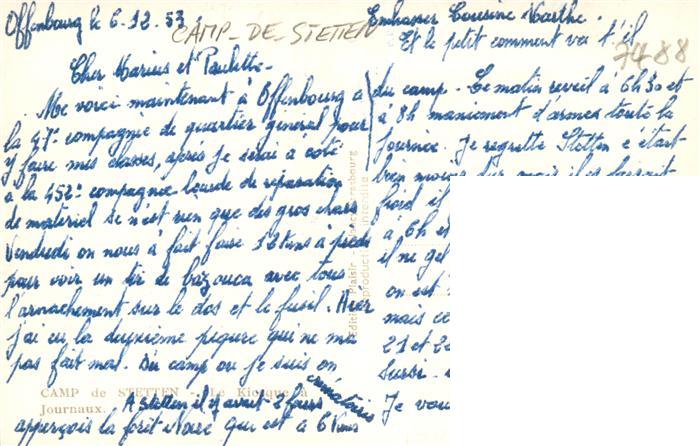 Offenbourg le 6.12.53.
CAMP-DE-STETTEN
Embrasser Cousine Marthe.
Et le petit comment va t'il
7488
Cher Marius et Paulette-
Me voici maintenant à Offenbourg a
la 47e compagnie de quartier général pour
y faire mes classes, après je serai a côté
a la 452e compagnie lourde de réparation
de matériel se n'est rien que des gros chars
Vendredi on nous à fait faire 12 Kms à pieds
pour voir un tir de bazouca avec tous
l'armachement sur le dos et le fusil. Hier
j'ai eu la deuxième piqure qui ne ma
pas fait mal. Du camp ou je suis on
apperçois la forêt Noire qui est à 6 Kms
A Stetten il y avait 2 fours
crématoires
CAMP de STETTEN - Le Kiosque à
Journaux.
du camp. Le matin reveil à 6h30 et
à 8h maniement d'armes toute la
journée. Je regrette Stetten c'était
bien mieux
froid il
à 6h et
il ne gel
on est
mais ce
21 et 2
aussi.
Je vou